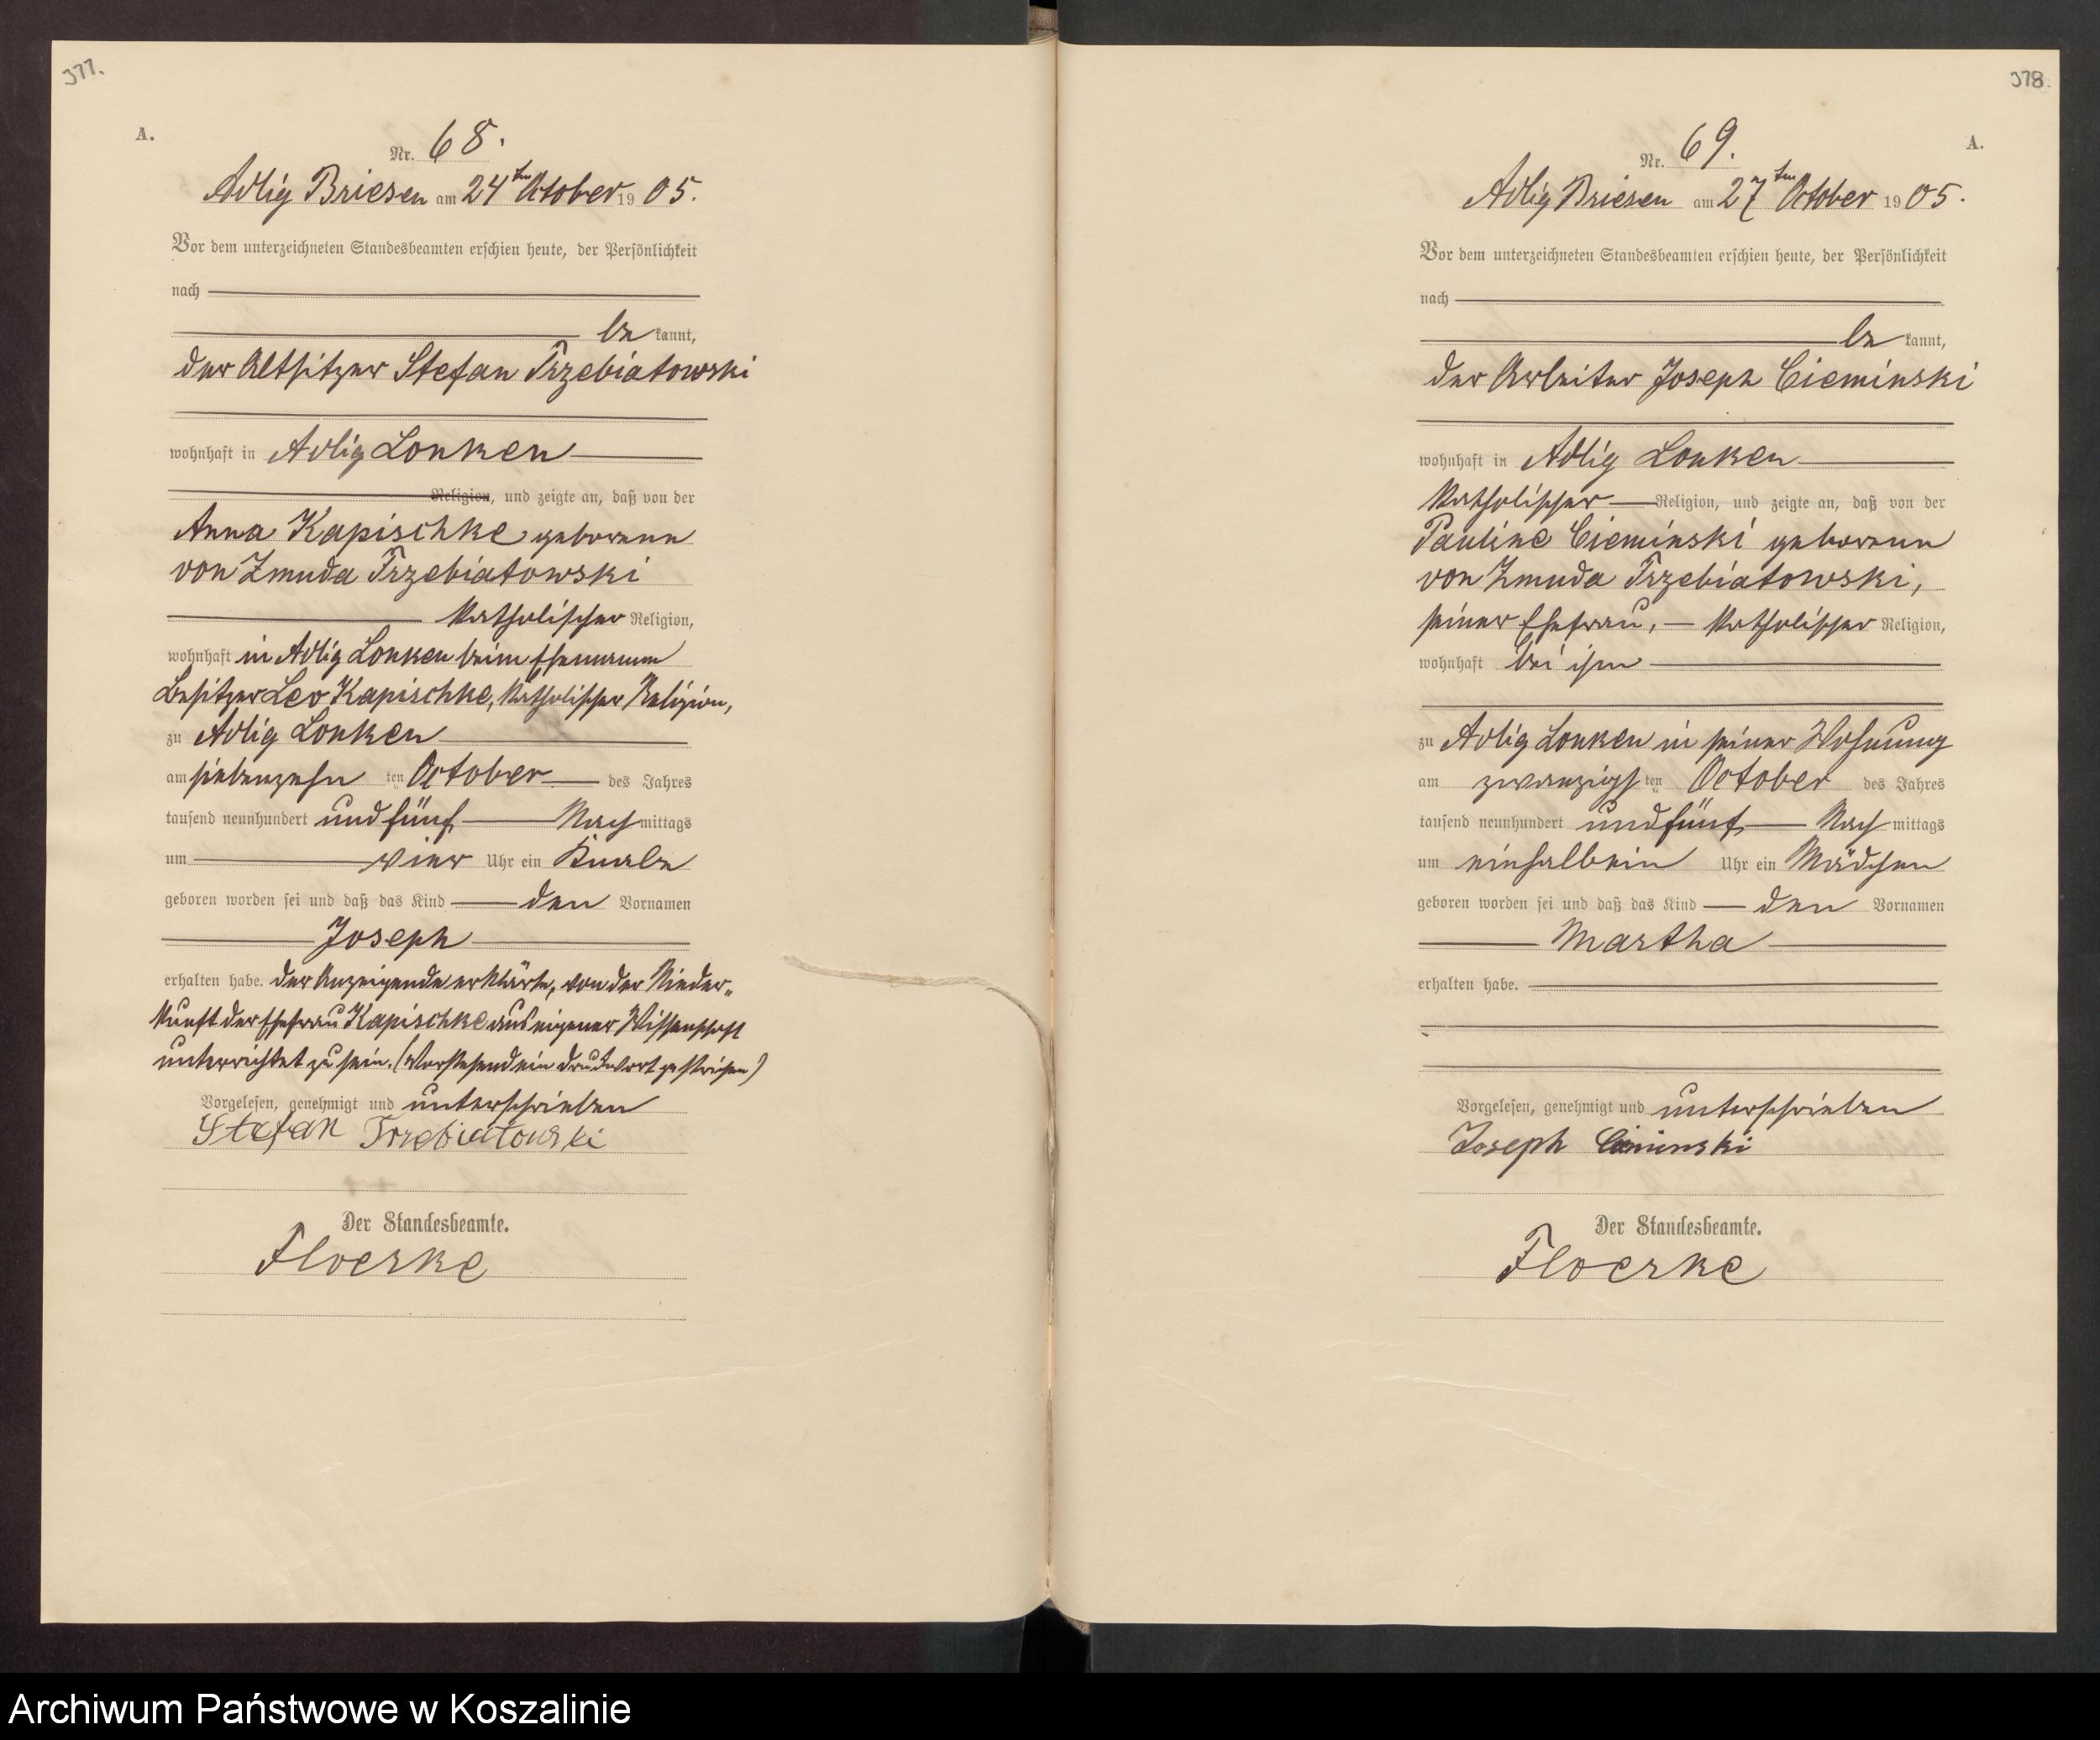 377.
A.
Nr. 68.
Adlig Briesen am 24ten October 1905.
Vor dem unterzeichneten Standesbeamten erschien heute, der Persönlichkeit
nach
be kannt,
der Altsitzer Stefan Trzebiatowski
wohnhaft in Adlig Lonken
Religion, und zeigte an, daß von der
Anna Kapischke geborene
von Zmuda Trzebiatowski
katholischer Religion,
wohnhaft in Adlig Lonken beim Ehemann
Besitzer Leo Kapischke, katholischer Religion,
zu Adlig Lonken
am siebenzehn ten October des Jahres
tausend neunhundert und fünf Nach mittags
um vier Uhr ein Knabe
geboren worden sei und daß das Kind den Vornamen
Joseph
erhalten habe. der Anzeigende erklärte, von der Nieder„
kunft der Ehefrau Kapischke aus eigener Wissenschaft
unterrichtet zu sein. (Vorstehend ein Druckwort gestrichen)
Vorgelesen, genehmigt und unterschrieben
Stefan Trzebiatowski
Der Standesbeamte.
Floerke
378.
A.
Nr. 69.
Adlig Briesen am 27ten October 1905.
Vor dem unterzeichneten Standesbeamten erschien heute, der Persönlichkeit
nach
be kannt,
der Arbeiter Joseph Cieminski
wohnhaft in Adlig Lonken
katholischer Religion, und zeigte an, daß von der
Pauline Cieminski geborene
von Zmuda Trzebiatowski,
seiner Ehefrau, katholischer Religion,
wohnhaft bei ihm
zu Adlig Lonken in seiner Wohnung
am zwanzigs ten October des Jahres
tausend neunhundert und fünf Nach mittags
um einhalb ein Uhr ein Mädchen
geboren worden sei und daß das Kind den Vornamen
Martha
erhalten habe.
Vorgelesen, genehmigt und unterschrieben
Joseph Cieminski
Der Standesbeamte.
Floerke
Archiwum Państwowe w Koszalinie